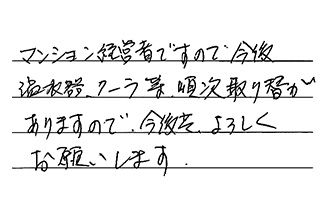 マンション経営者ですので今後
温水器、クーラー等、順次取り替が
ありますので、今後共、よろしく
お願いします.